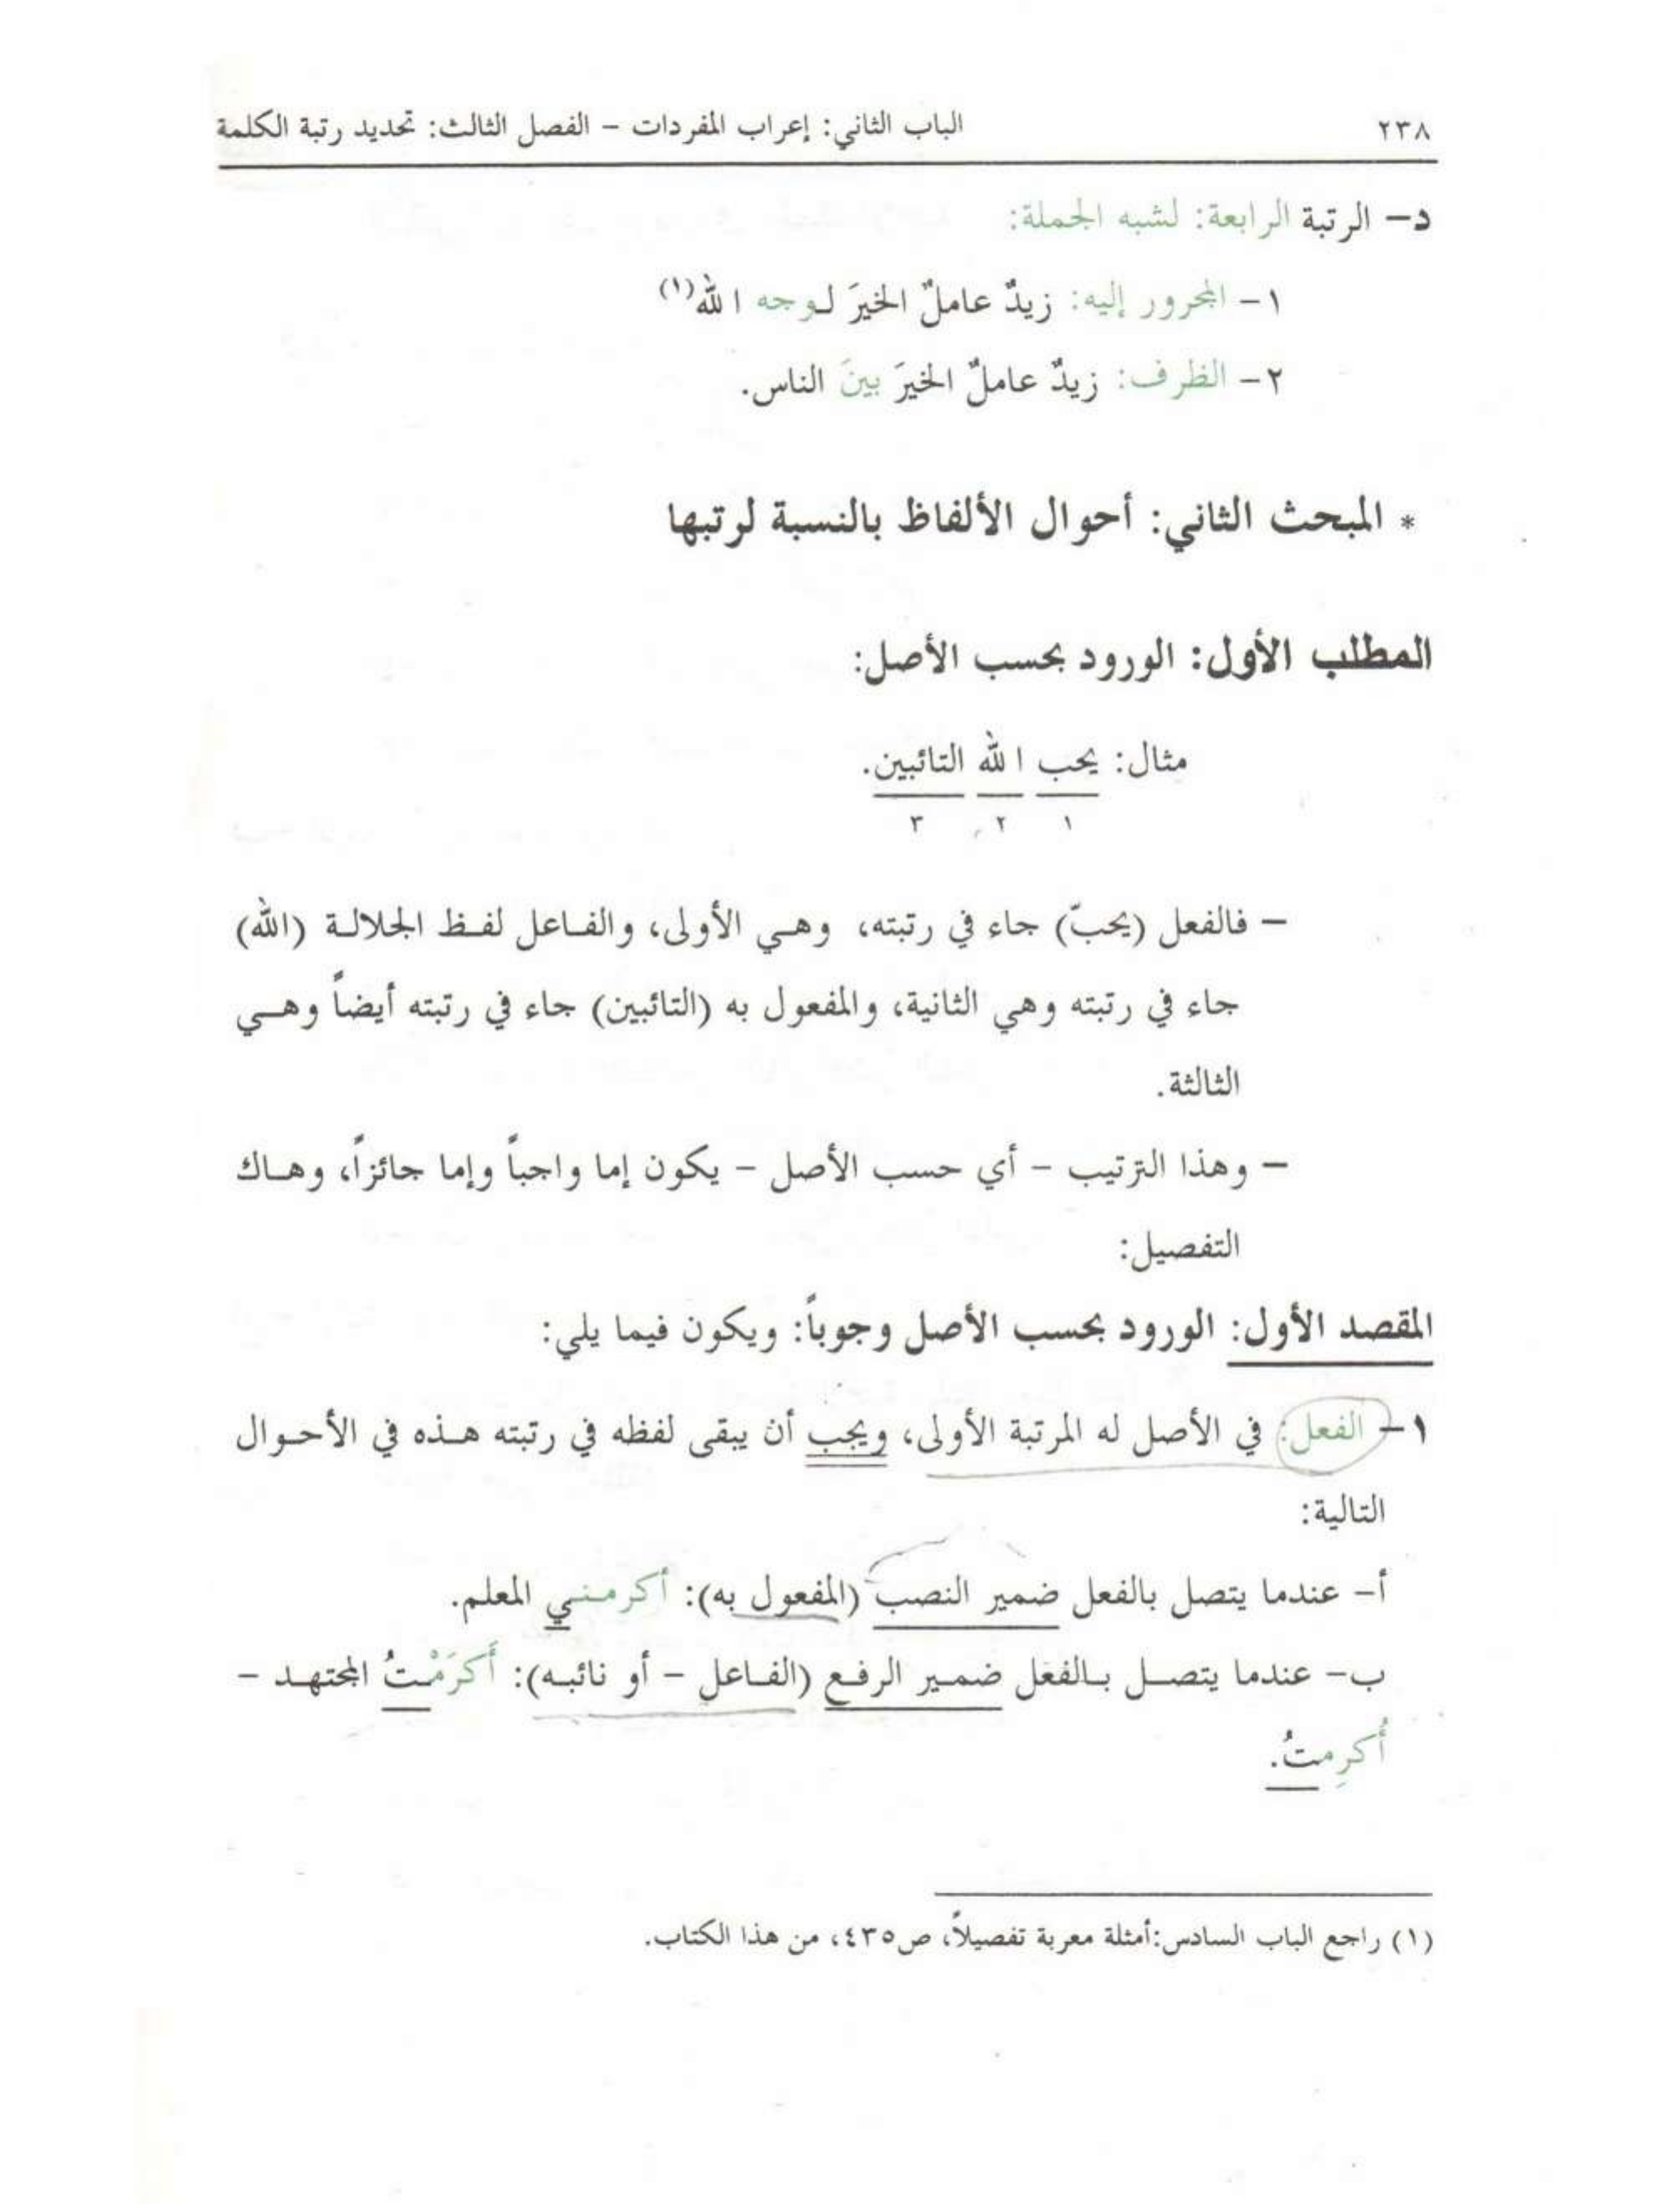 ٢٣٨ الباب الثاني: إعراب المفردات – الفصل الثالث: تحديد رتبة الكلمة
د– الرتبة الرابعة: لشبه الجملة:
١– المجرور إليه: زيدٌ عاملٌ الخيرَ لوجه الله(١)
٢– الظرف: زيدٌ عاملٌ الخيرَ بينَ الناس.
* المبحث الثاني: أحوال الألفاظ بالنسبة لرتبها
المطلب الأول: الورود بحسب الأصل:
مثال: يحب الله التائبين.
١ ٢ ٣
– فالفعل (يحبّ) جاء في رتبته، وهي الأولى، والفاعل لفظ الجلالة (الله)
جاء في رتبته وهي الثانية، والمفعول به (التائبين) جاء في رتبته أيضاً وهي
الثالثة.
– وهذا الترتيب – أي حسب الأصل – يكون إما واجباً وإما جائزاً، وهاك
التفصيل:
المقصد الأول: الورود بحسب الأصل وجوباً: ويكون فيما يلي:
١– الفعل: في الأصل له المرتبة الأولى، ويجب أن يبقى لفظه في رتبته هذه في الأحوال
التالية:
أ– عندما يتصل بالفعل ضمير النصب (المفعول به): أكرمني المعلم.
ب– عندما يتصل بالفعل ضمير الرفع (الفاعل – أو نائبه): أَكرَمْتُ المجتهد –
أُكرِمتُ.
(١) راجع الباب السادس:أمثلة معربة تفصيلاً، ص٤٣٥، من هذا الكتاب.